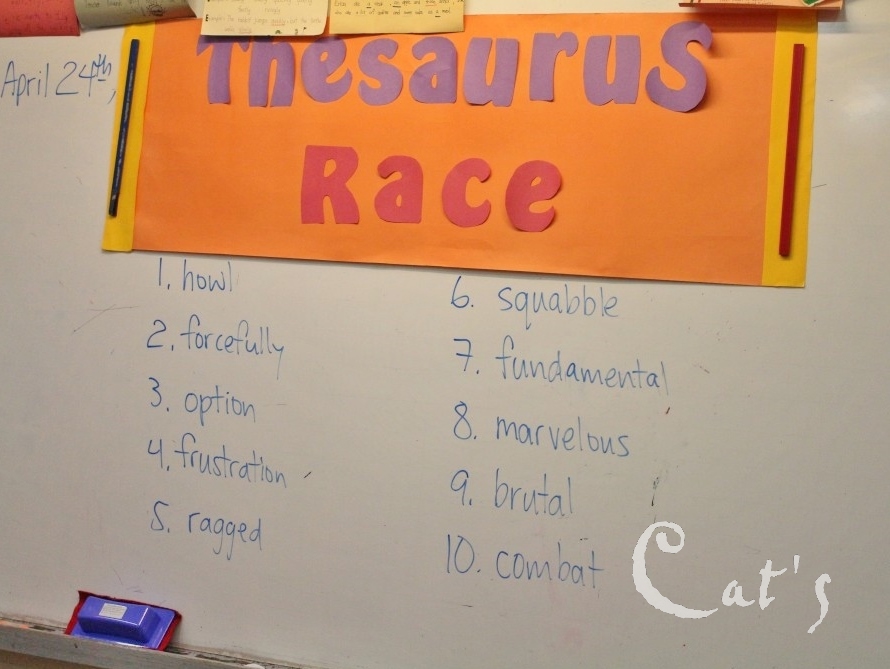 April 24th,
Thesaurus
Race
1. howl
2. forcefully
3. option
4. frustration
5. ragged
6. squabble
7. fundamental
8. marvelous
9. brutal
10. combat
Cat's